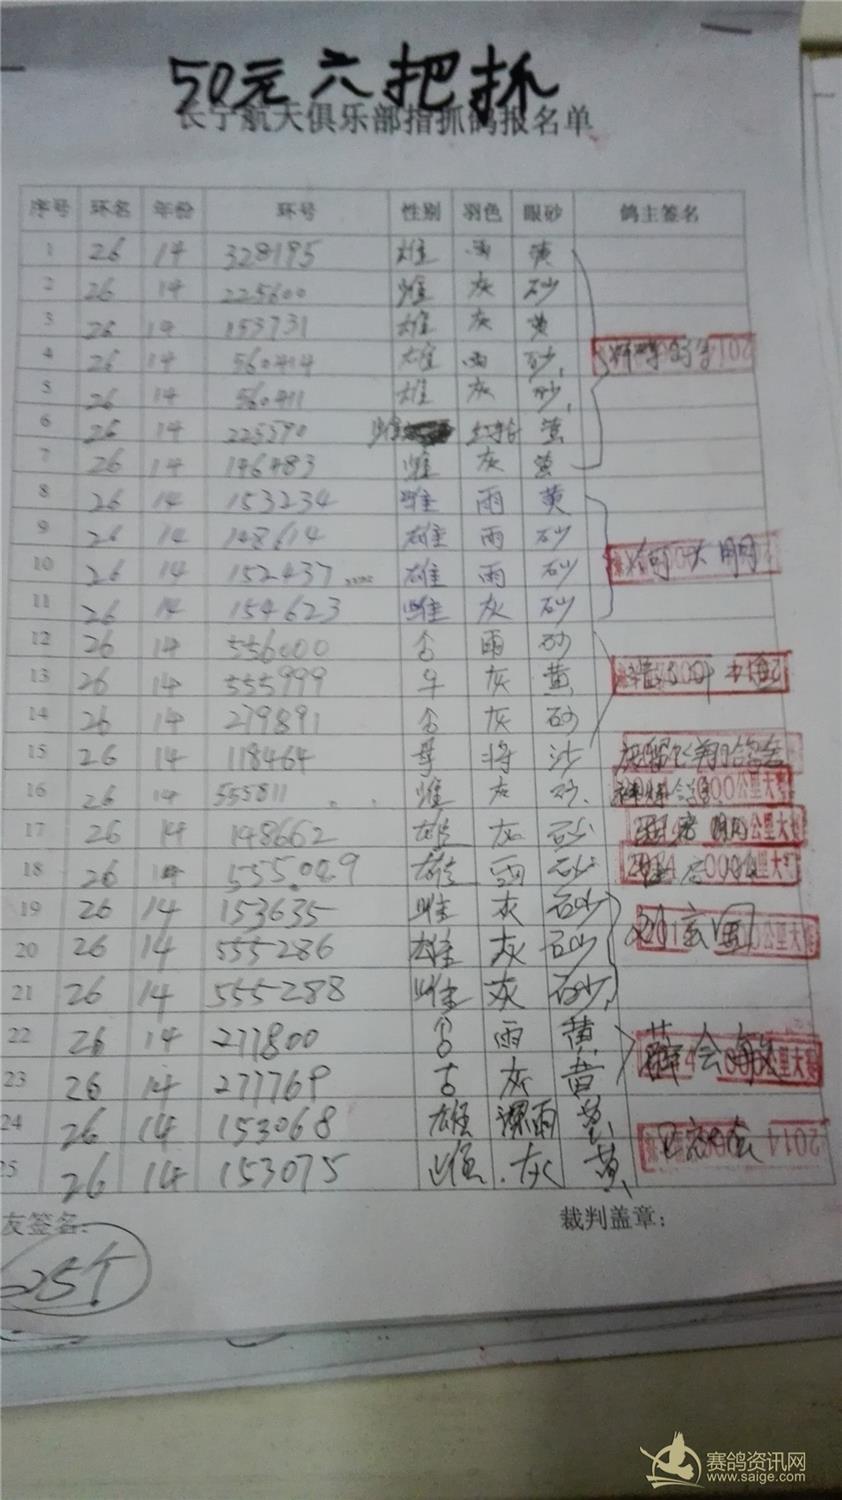 50元六把抓
长宁航天俱乐部指抓鸽报名单
序号 环名 年份 环号 性别 羽色 眼砂 鸽主签名
1 26 14 328195 雄 黄
2 26 14 225600 雌 灰 砂
3 26 14 153731 雄 灰 黄
4 26 14 560414 雄 雨 砂
5 26 14 560411 雄 灰 砂
6 26 14 225590 雌 黄
7 26 14 146483 雌 灰 黄
8 26 14 153234 雌 雨 黄
9 26 14 148614 雄 雨 砂
10 26 14 152437 雄 雨 砂
11 26 14 154623 雌 灰 砂
12 26 14 556000 雨 砂
13 26 14 555999 灰 黄
14 26 14 279891 灰 砂
15 26 14 118464 沙
16 26 14 555811 雌 灰 砂
17 26 14 148662 雄 灰 砂
18 26 14 555009 雄 雨 砂
19 26 14 153635 雌 灰 砂
20 26 14 555286 雄 灰 砂
21 26 14 555288 雌 灰 砂
22 26 14 277800 雨 黄
23 26 14 277769 灰 黄 薛会敏
24 26 14 153068 雄 雨 黄
25 26 14 153075 雌 灰 黄
友签名: 裁判盖章：
25个
赛鸽资讯网
www.saige.com